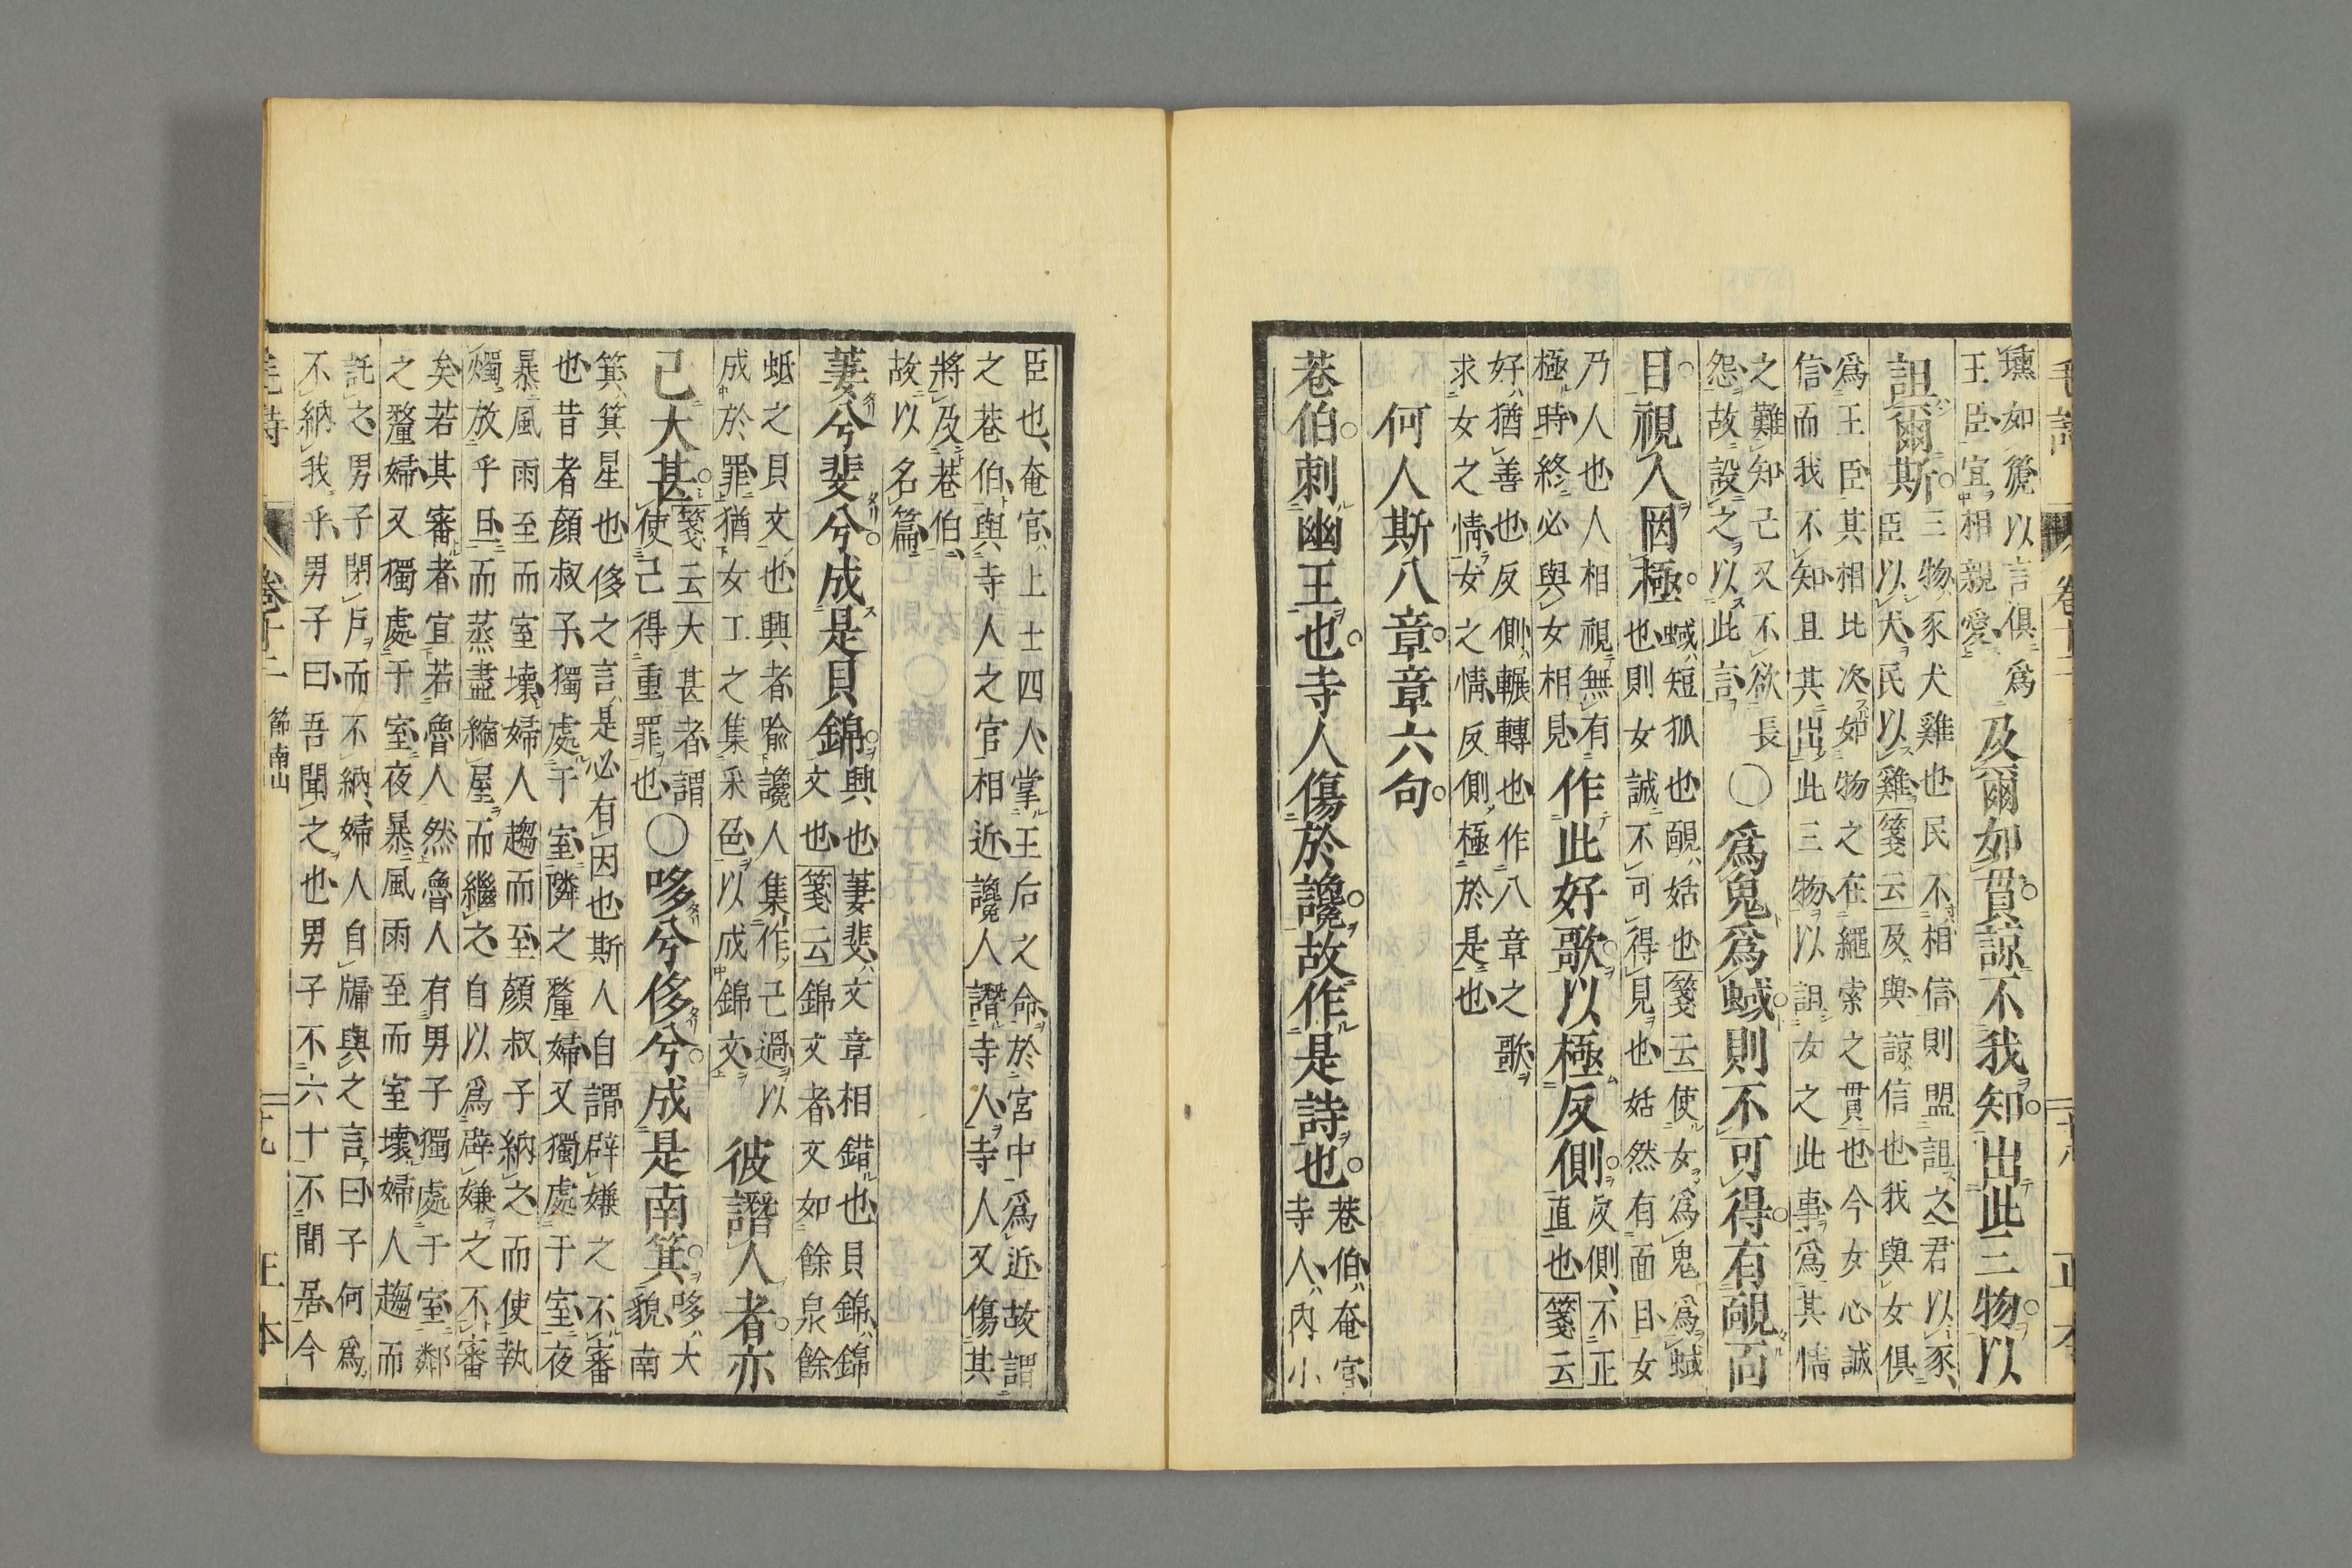 毛詩 卷十二 二十八 正本
壎如篪以言俱爲
王臣宜相親愛
及爾如貫諒不我知出此三物以
詛爾斯
三物豕犬雞也民不相信則盟詛之君以豕
臣以犬民以雞箋云及與諒信也我與女俱
爲王臣其相比次如物之在繩索之貫也今女心誠
信而我不知且共出此三物以詛女之此事爲其情
之難知己又不欲長
怨故設之以此言
〇爲鬼爲蜮則不可得有靦面
目視人罔極
蜮短狐也靦姑也箋云使女爲鬼爲蜮
也則女誠不可得見也姑然有面目女
乃人也人相視無有
極時終必與女相見
作此好歌以極反側
反側不正
直也箋云
好猶善也反側輾轉也作八章之歌
求女之情女之情反側極於是也
何人斯八章章六句
巷伯刺幽王也寺人傷於讒故作是詩也
巷伯奄官
寺人內小
臣也奄官上士四人掌王后之命於宮中爲近故謂
之巷伯與寺人之官相近讒人譖寺人寺人又傷其
將及巷伯
故以名篇
萋兮斐兮成是貝錦
興也萋斐文章相錯也貝錦錦
文也箋云錦文者文如餘泉餘
蚳之貝文也興者喩讒人集作己過以
成於罪猶女工之集采色以成錦文
彼譖人者亦
已大甚
箋云大甚者謂
使己得重罪也
〇哆兮侈兮成是南箕
哆大
貌南
箕箕星也侈之言是必有因也斯人自謂辟嫌之不審
也昔者顔叔子獨處于室隣之釐婦又獨處于室夜
暴風雨至而室壞婦人趨而至顔叔子納之而使執
燭放乎旦而蒸盡縮屋而繼之自以爲辟嫌之不審
矣若其審者宜若魯人然魯人有男子獨處于室鄰
之釐婦又獨處于室夜暴風雨至而室壞婦人趨而
託之男子閉戶而不納婦人自牖與之言曰子何爲
不納我乎男子曰吾聞之也男子不六十不閒居今
毛詩 卷十二 節南山 二十九 正本